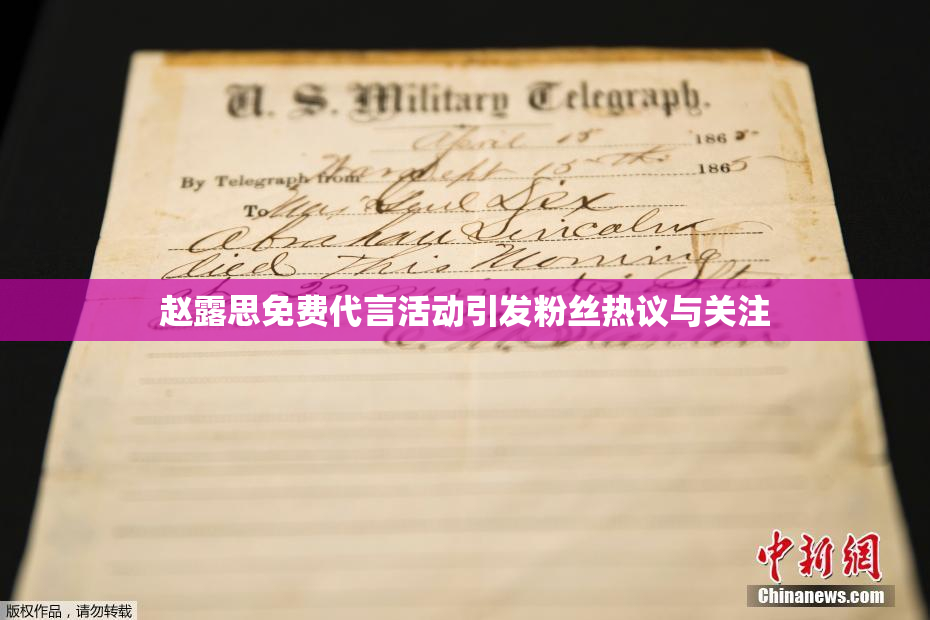 U. S. Military Telegraph.
April 15 1865
By Telegraph from War Dept 15th 1865
To Maj Genl Dix
Abraham Lincoln
died This Morning
at 22 minutes after
赵露思免费代言活动引发粉丝热议与关注
E. M. Stanton
中新网
Chinanews.com
版权作品，请勿转载